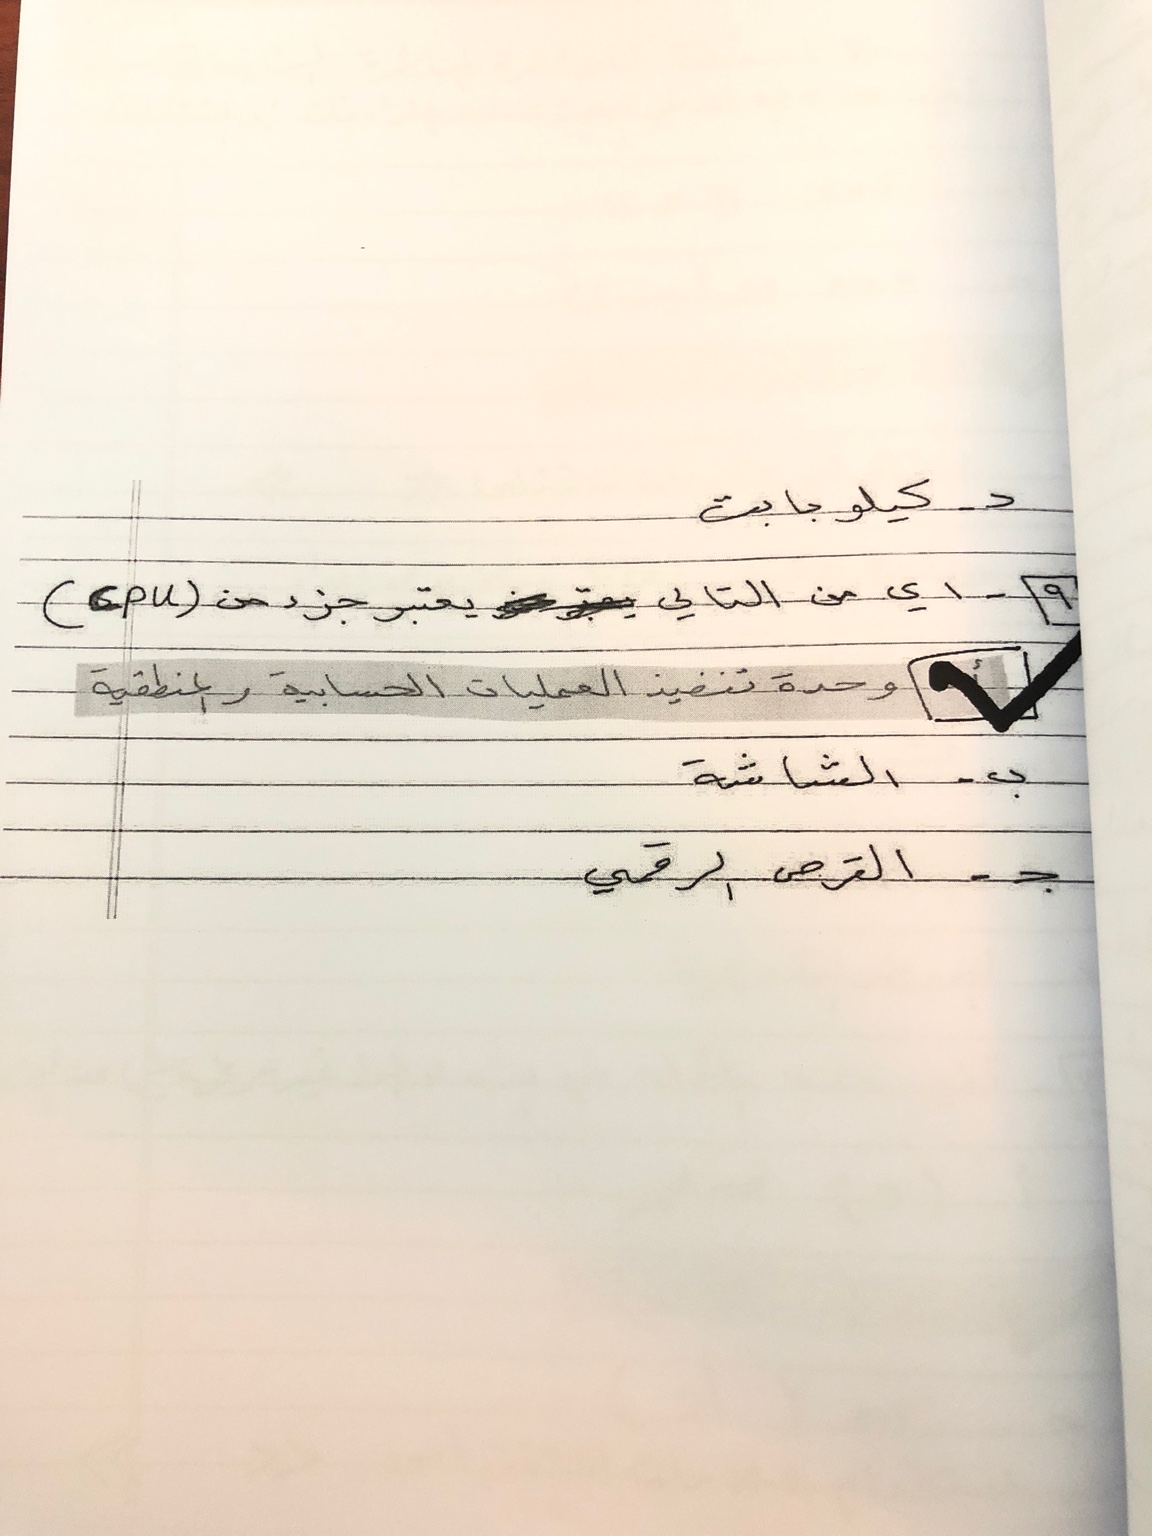 د - كيلو بايت
٩ - اي من التالي يعتبر جزء من (CPU)
أ وحدة تنفيذ العمليات الحسابية والمنطقية
ب - الشاشة
جـ - القرص الرقمي